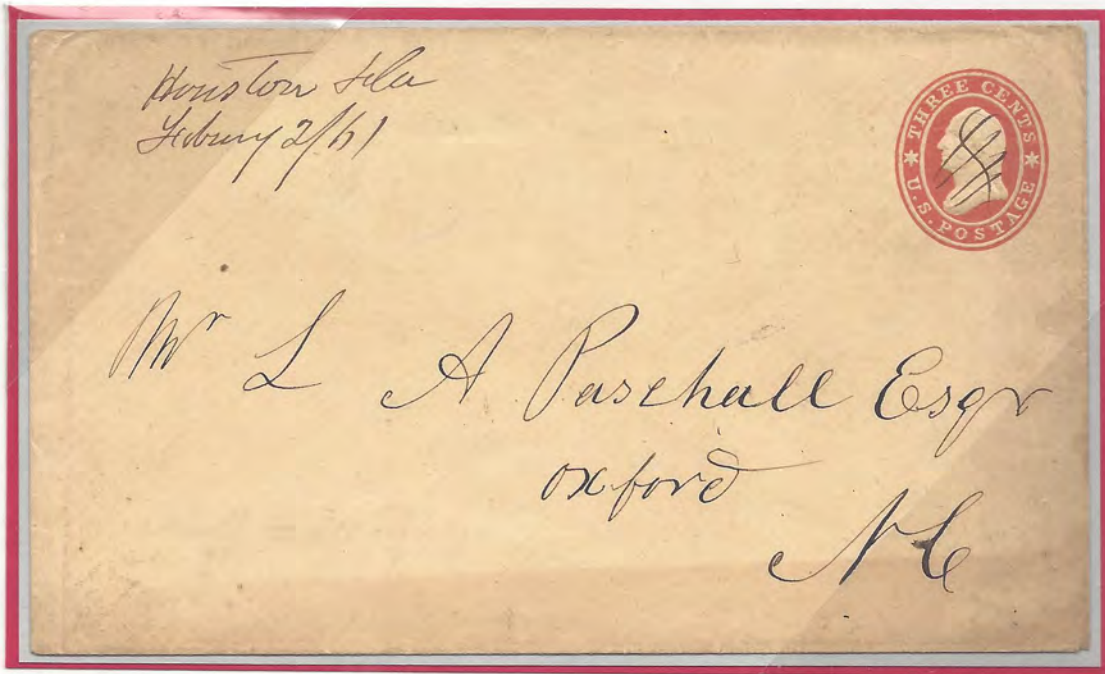 Houston Fla
Febuury 2/61
THREE CENTS
U.S. POSTAGE
Mr L A Paschall Esqr
oxford
N C